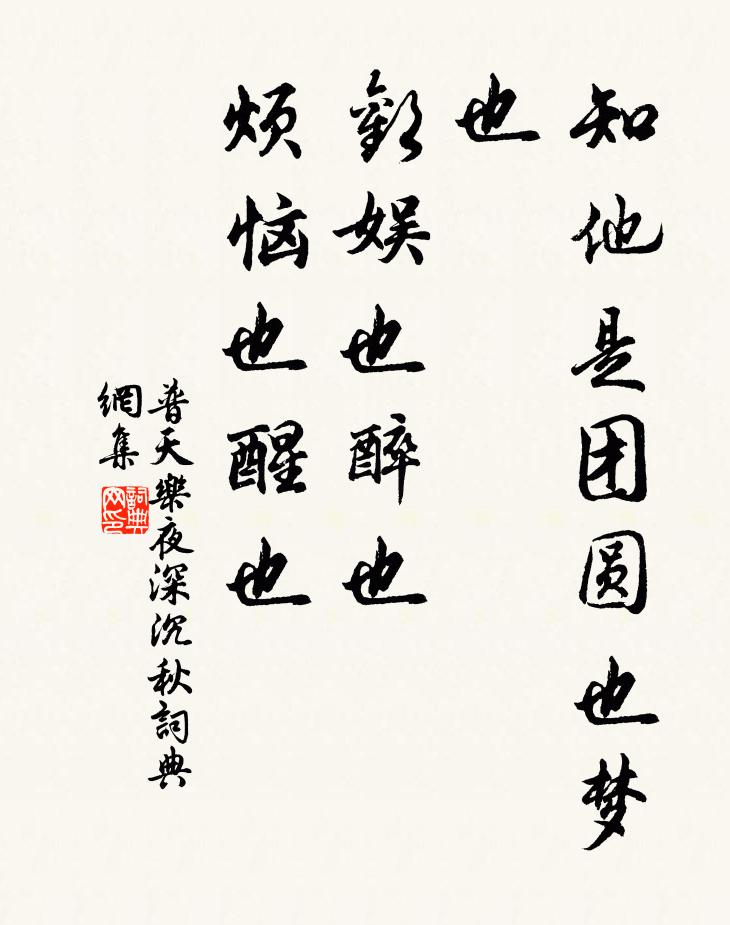 知他是团圆也梦
也
歡娱也醉也
烦恼也醒也
普天樂夜深沉秋詞典
網集
詞典
网印